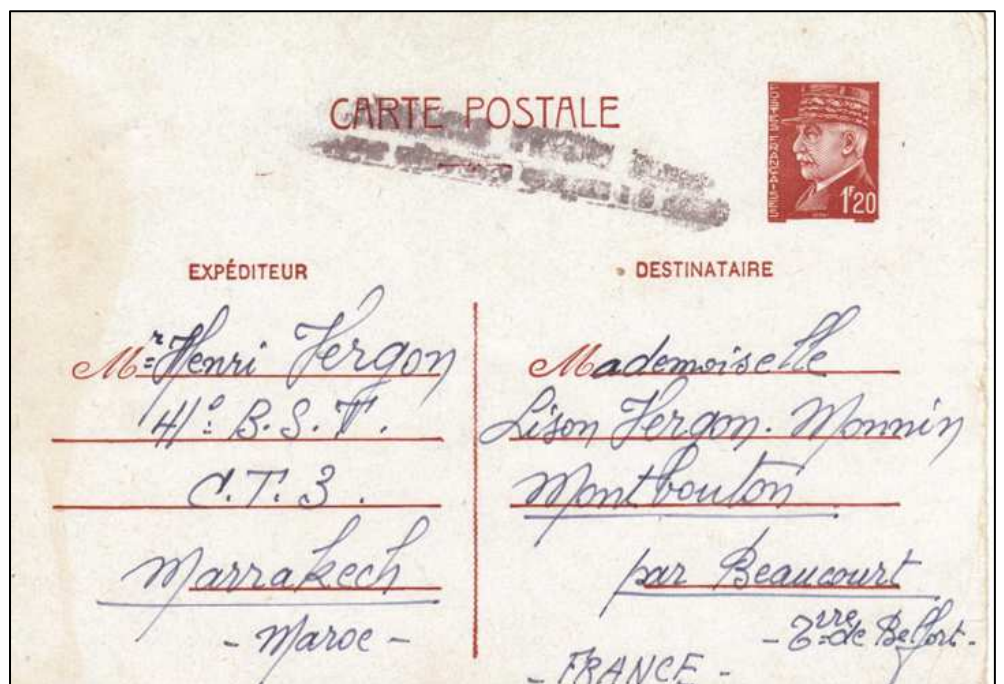 CARTE POSTALE
POSTES FRANÇAISES
1F20
EXPÉDITEUR
Mr Henri Vergon
41e B.S.T.
C.T.3.
Marrakech
- Maroc -
DESTINATAIRE
Mademoiselle
Lison Vergon. Monnin
Montbouton
par Beaucourt
- Trre de Belfort -
- FRANCE -